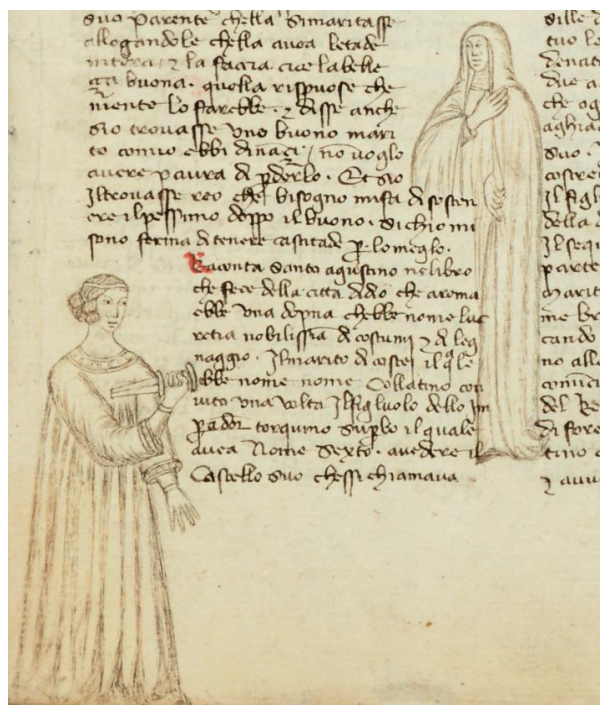 suo parente chella simaritasse
allegandole chella avea letade
intera, ⁊ la faccia cue labelle
buona. quella rispuose che
niente lo farebbe. ⁊ disse anche
sio trovasse uno buono mari
to comio ebbi dinançi / nō voglo
avere paura di ꝑderlo. Et sio
Iltrovasse reo che bisogno mista di sosten
ere ilpessimo doppo il buono. Sichio mi
sono ferma di tenere castitade ꝑ lomeglo.
Raconta santo agustino nelibro
che fece della citta didio che aroma
ebbe una doñna chebbe nome luc
retia nobilissīa di costumi ⁊ di leg
naggio. Ilmarito di costei il q̄le
ebbe nome nome Collatino con
vito una volta Ilfigluolo dello Im
ꝑador torquino supbo il quale
avea Nome Sexto. avedere il
Castello suo chessi chiamava
sille
tuo le
denti
due a
che og
aghia
suo.
costre
Il figl
della
Il sequ
parte
marit
me br
cando
no all
comīci
del Re
di fore
tino
⁊ auu